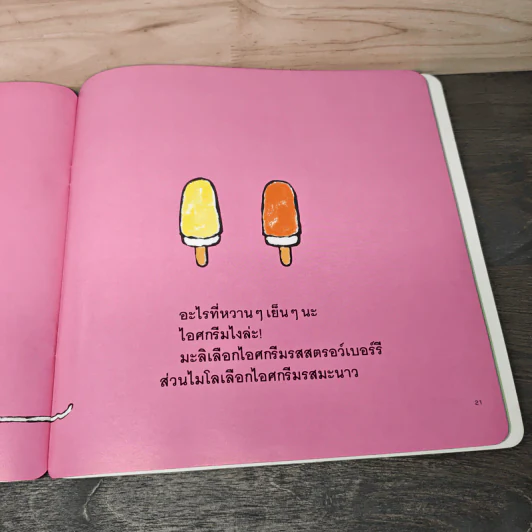 อะไรที่หวาน ๆ เย็น ๆ นะ
ไอศกรีมไงล่ะ!
มะลิเลือกไอศกรีมรสสตรอว์เบอร์รี
ส่วนไมโลเลือกไอศกรีมรสมะนาว
21